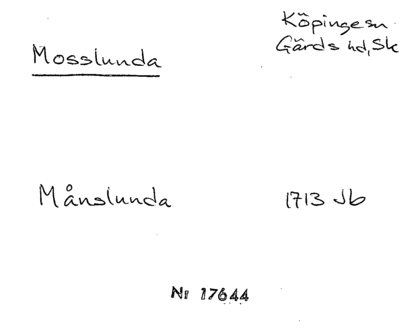 Mosslunda
Köpinge sn
Gärds hd, Sk
Månslunda
1713 Jb
Nr 17644